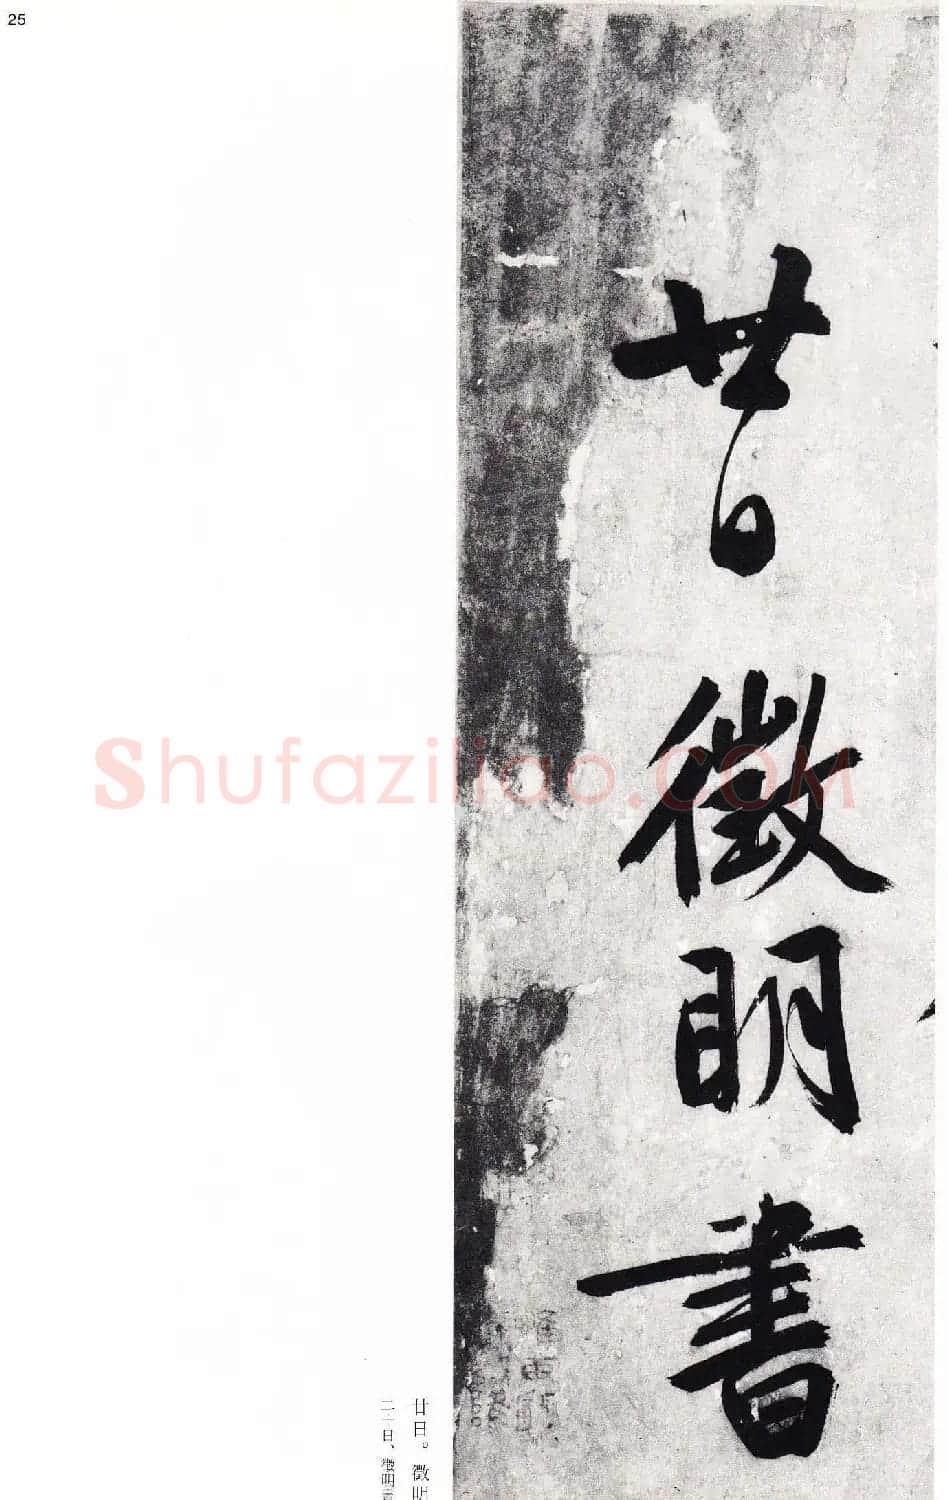 25
廿日徵明書
廿日。徵明
二十日、徴明書
Shufaziliao.COM